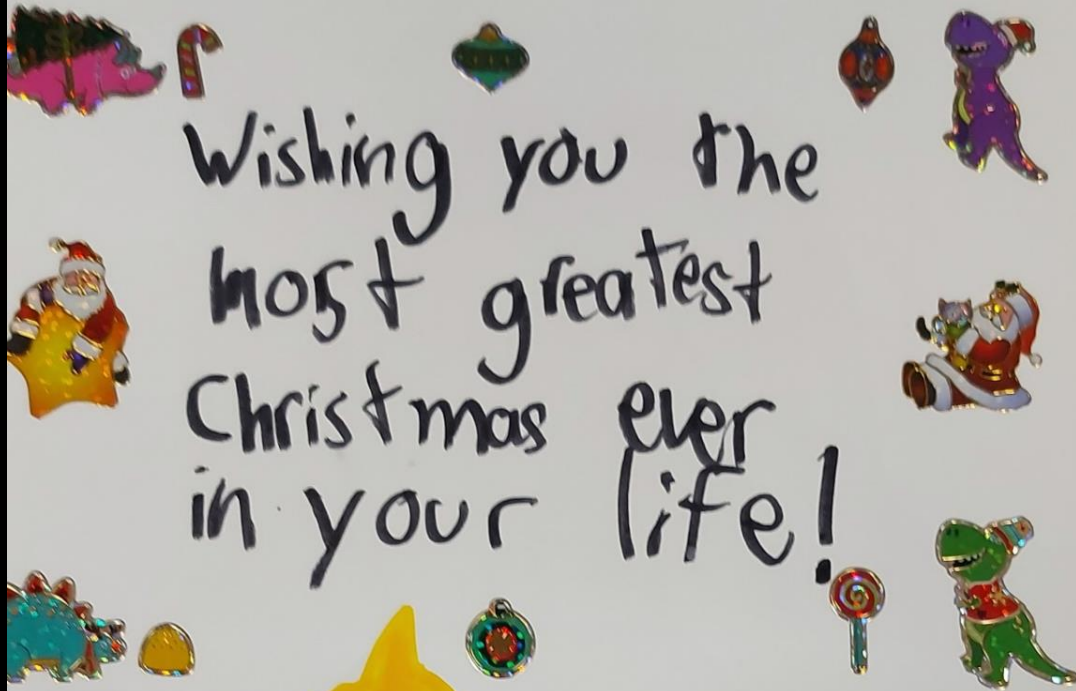 Wishing you the
most greatest
Christmas ever
in your life!